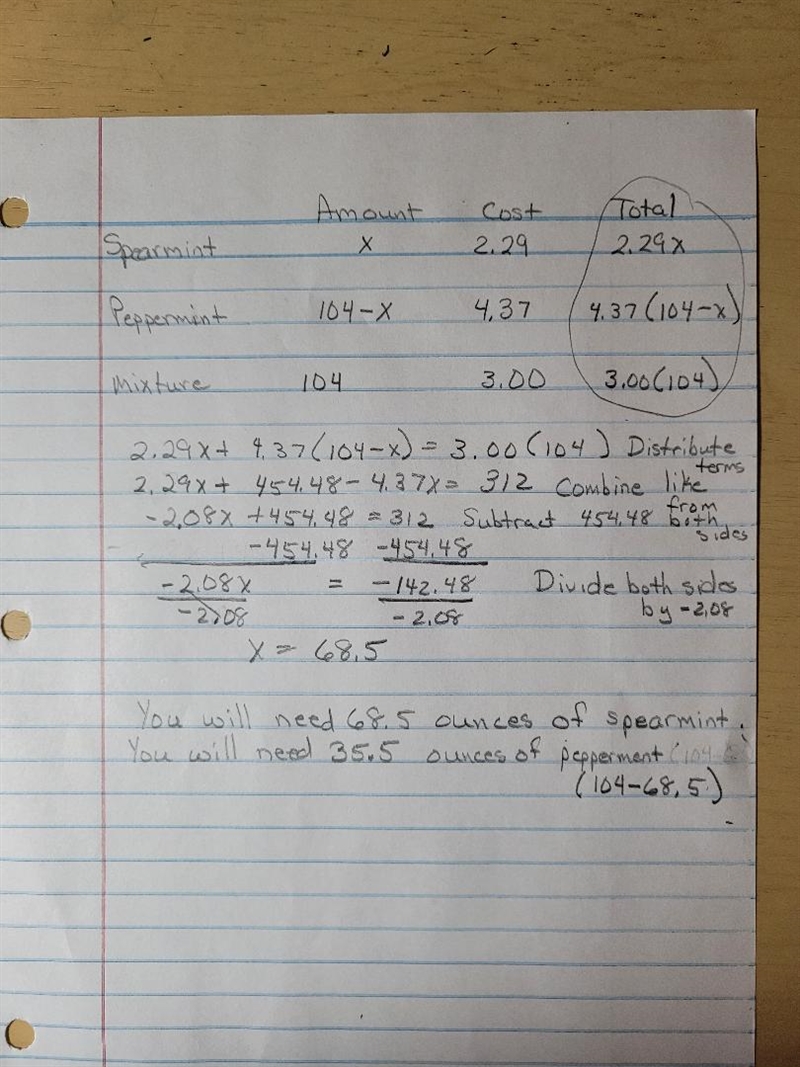 Amount Cost Total
Spearmint x 2.29 2.29x
Peppermint 104-x 4.37 4.37(104-x)
Mixture 104 3.00 3.00(104)
2.29x + 4.37(104-x) = 3.00(104) Distribute
2.29x + 454.48 - 4.37x = 312 Combine like terms
-2.08x + 454.48 = 312 Subtract 454.48 from both sides
-454.48 -454.48
-2.08x = -142.48 Divide both sides
-2.08 -2.08 by -2.08
x = 68.5
You will need 68.5 ounces of spearmint.
You will need 35.5 ounces of pepperment (104
(104-68.5)